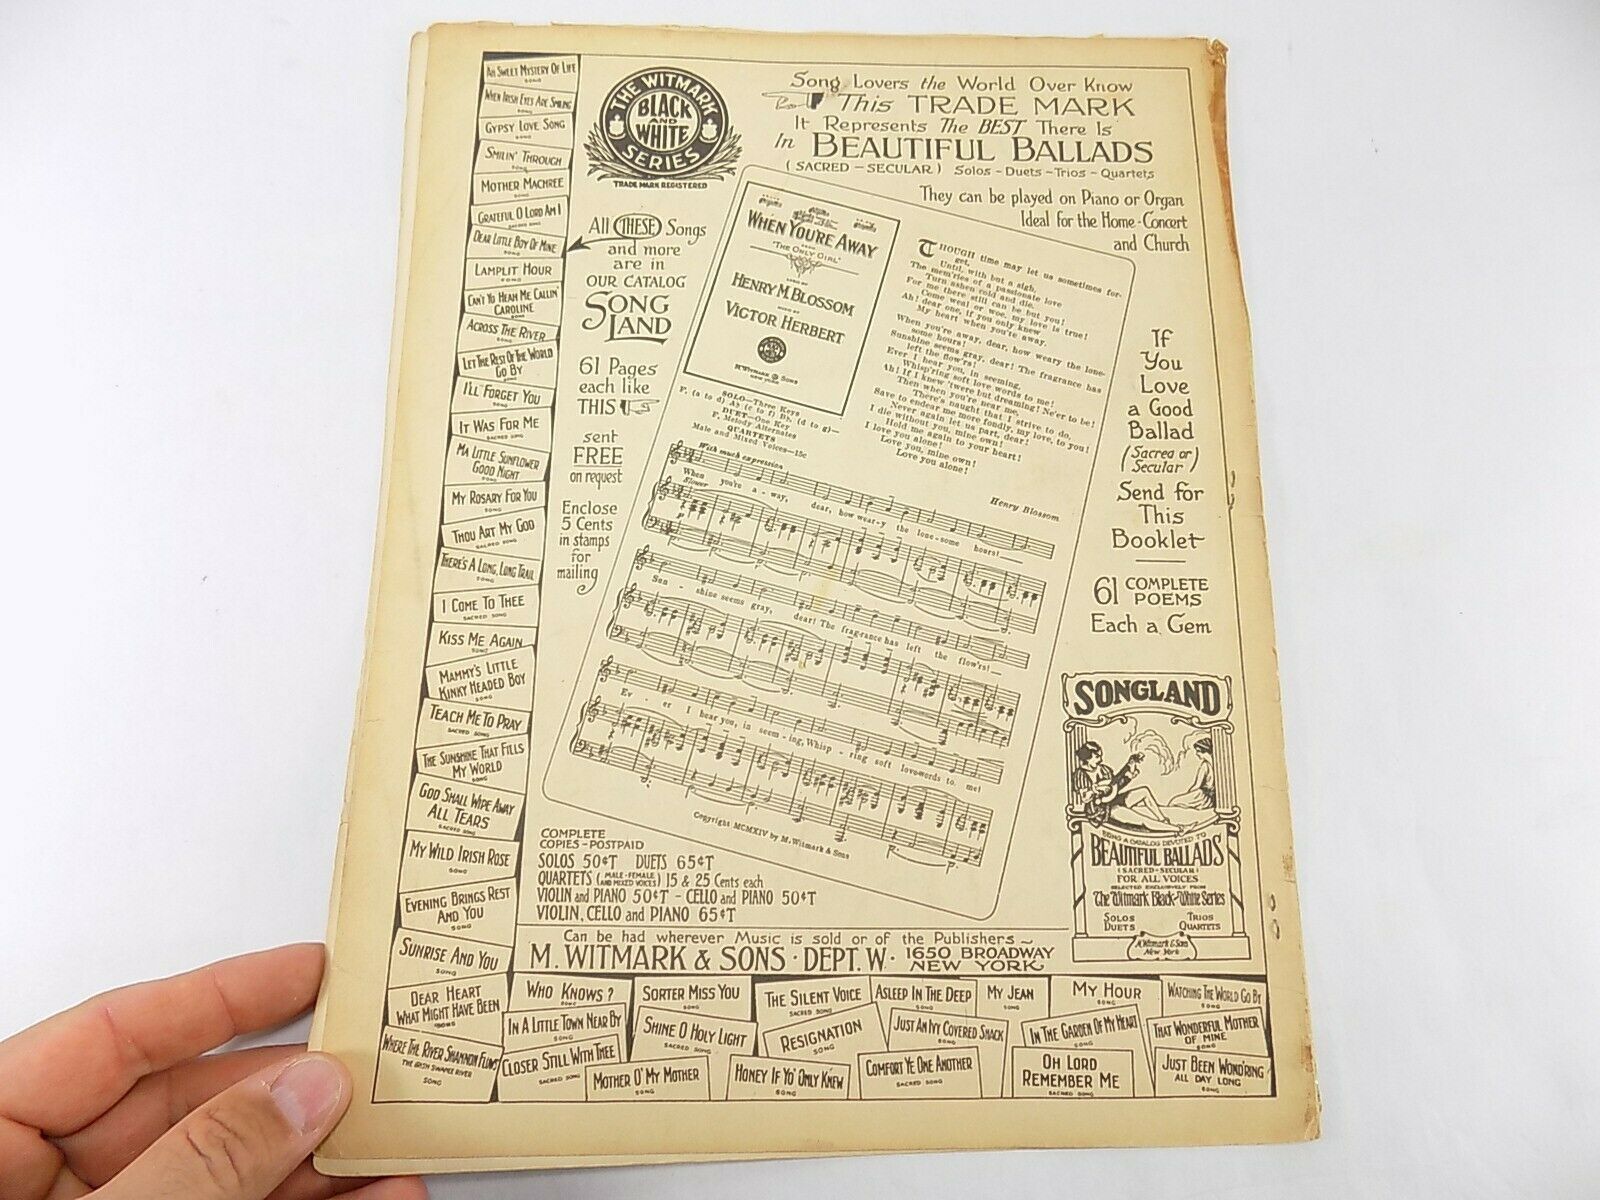 AH SWEET MYSTERY OF LIFE
SONG
WHEN IRISH EYES ARE SMILING
GYPSY LOVE SONG
SMILIN' THROUGH
SONG
MOTHER MACHREE
SONG
GRATEFUL O LORD AM I
SACRED SONG
DEAR LITTLE BOY OF MINE
SONG
LAMPLIT HOUR
SONG
CAN'T YO HEAH ME CALLIN'
CAROLINE
SONG
ACROSS THE RIVER
LET THE REST OF THE WORLD
GO BY
SONG
I'LL FORGET YOU
SONG
IT WAS FOR ME
SACRED SONG
MA LITTLE SUNFLOWER
GOOD NIGHT
SONG
MY ROSARY FOR YOU
SONG
THOU ART MY GOD
SACRED SONG
THERE'S A LONG, LONG TRAIL
SONG
I COME TO THEE
SACRED SONG
KISS ME AGAIN
SONG
MAMMY'S LITTLE
KINKY HEADED BOY
SONG
TEACH ME TO PRAY
SACRED SONG
THE SUNSHINE THAT FILLS
MY WORLD
SONG
GOD SHALL WIPE AWAY
ALL TEARS
SACRED SONG
MY WILD IRISH ROSE
SONG
EVENING BRINGS REST
AND YOU
SONG
SUNRISE AND YOU
SONG
DEAR HEART
WHAT MIGHT HAVE BEEN
SONG
WHERE THE RIVER SHANNON FLOWS
THE IRISH SWANEE RIVER
SONG
THE WITMARK
BLACK
AND
WHITE
SERIES
TRADE MARK REGISTERED
Song Lovers the World Over Know
This TRADE MARK
It Represents The BEST There Is
In BEAUTIFUL BALLADS
(SACRED - SECULAR) Solos - Duets - Trios - Quartets
They can be played on Piano or Organ
Ideal for the Home - Concert
and Church
All THESE Songs
and more
are in
OUR CATALOG
SONG
LAND
61 Pages
each like
THIS
sent
FREE
on request
Enclose
5 Cents
in stamps
for
mailing
WHEN YOU'RE AWAY
FROM
"THE ONLY GIRL"
HENRY M. BLOSSOM
VICTOR HERBERT
M. WITMARK & SONS
NEW YORK
SOLO—Three Keys
F, (a to d) Ab, (c to f) Bb, (d to g)—
DUET—One Key
F, Melody Alternates
QUARTETS
Male and Mixed Voices—15c
THOUGH time may let us sometimes for-
get,
Until, with but a sigh,
The mem'ries of a passionate love
Turn ashen cold and die,
For me there still can be but you!
Come weal or woe, my love is true!
Ah! dear one, if you only knew
My heart when you're away.
When you're away, dear, how weary the lone-
some hours!
Sunshine seems gray, dear! The fragrance has
left the flow'rs!
Ever I hear you, in seeming,
Whisp'ring soft love words to me!
Ah! If I knew 'twere but dreaming! Ne'er to be!
Then when you're near me,
There's naught that I strive to do,
Save to endear me more fondly, my love, to you!
Never again let us part, dear!
I die without you, mine own!
Hold me again to your heart!
I love you alone!
Love you, mine own!
Love you alone!
Henry Blossom
With much expression
When you're a - way, dear, how wear-y the lone - some hours!
Slower
Sun - shine seems gray, dear! The fra-grance has left the flow'rs!
Ev - er I hear you, in seem - ing, Whisp - ring soft love-words to me!
Copyright MCMXIV by M. Witmark & Sons
If
You
Love
a Good
Ballad
(Sacred or
Secular)
Send for
This
Booklet
61 COMPLETE
POEMS
Each a Gem
SONGLAND
BEING A CATALOG DEVOTED TO
BEAUTIFUL BALLADS
(SACRED - SECULAR)
FOR ALL VOICES
SELECTED EXCLUSIVELY FROM
The Witmark Black and White Series
SOLOS TRIOS
DUETS QUARTETS
M. Witmark & Sons
New York
COMPLETE
COPIES - POSTPAID
SOLOS 50¢T DUETS 65¢T
QUARTETS (MALE - FEMALE AND MIXED VOICES) 15 & 25 Cents each
VIOLIN and PIANO 50¢T - CELLO and PIANO 50¢T
VIOLIN, CELLO and PIANO 65¢T
Can be had wherever Music is sold or of the Publishers ~
M. WITMARK & SONS · DEPT. W · 1650 BROADWAY
NEW YORK
WHO KNOWS?
SONG
SORTER MISS YOU
SONG
THE SILENT VOICE
SACRED SONG
ASLEEP IN THE DEEP
SONG
MY JEAN
SONG
MY HOUR
SONG
WATCHING THE WORLD GO BY
SONG
IN A LITTLE TOWN NEAR BY
SONG
SHINE O HOLY LIGHT
SACRED SONG
RESIGNATION
SONG
JUST AN IVY COVERED SHACK
SONG
IN THE GARDEN OF MY HEART
SONG
THAT WONDERFUL MOTHER
OF MINE
SONG
CLOSER STILL WITH THEE
SACRED SONG
MOTHER O' MY MOTHER
SONG
HONEY IF YO' ONLY KNEW
SONG
COMFORT YE ONE ANOTHER
SACRED SONG
OH LORD
REMEMBER ME
SACRED SONG
JUST BEEN WOND'RING
ALL DAY LONG
SONG